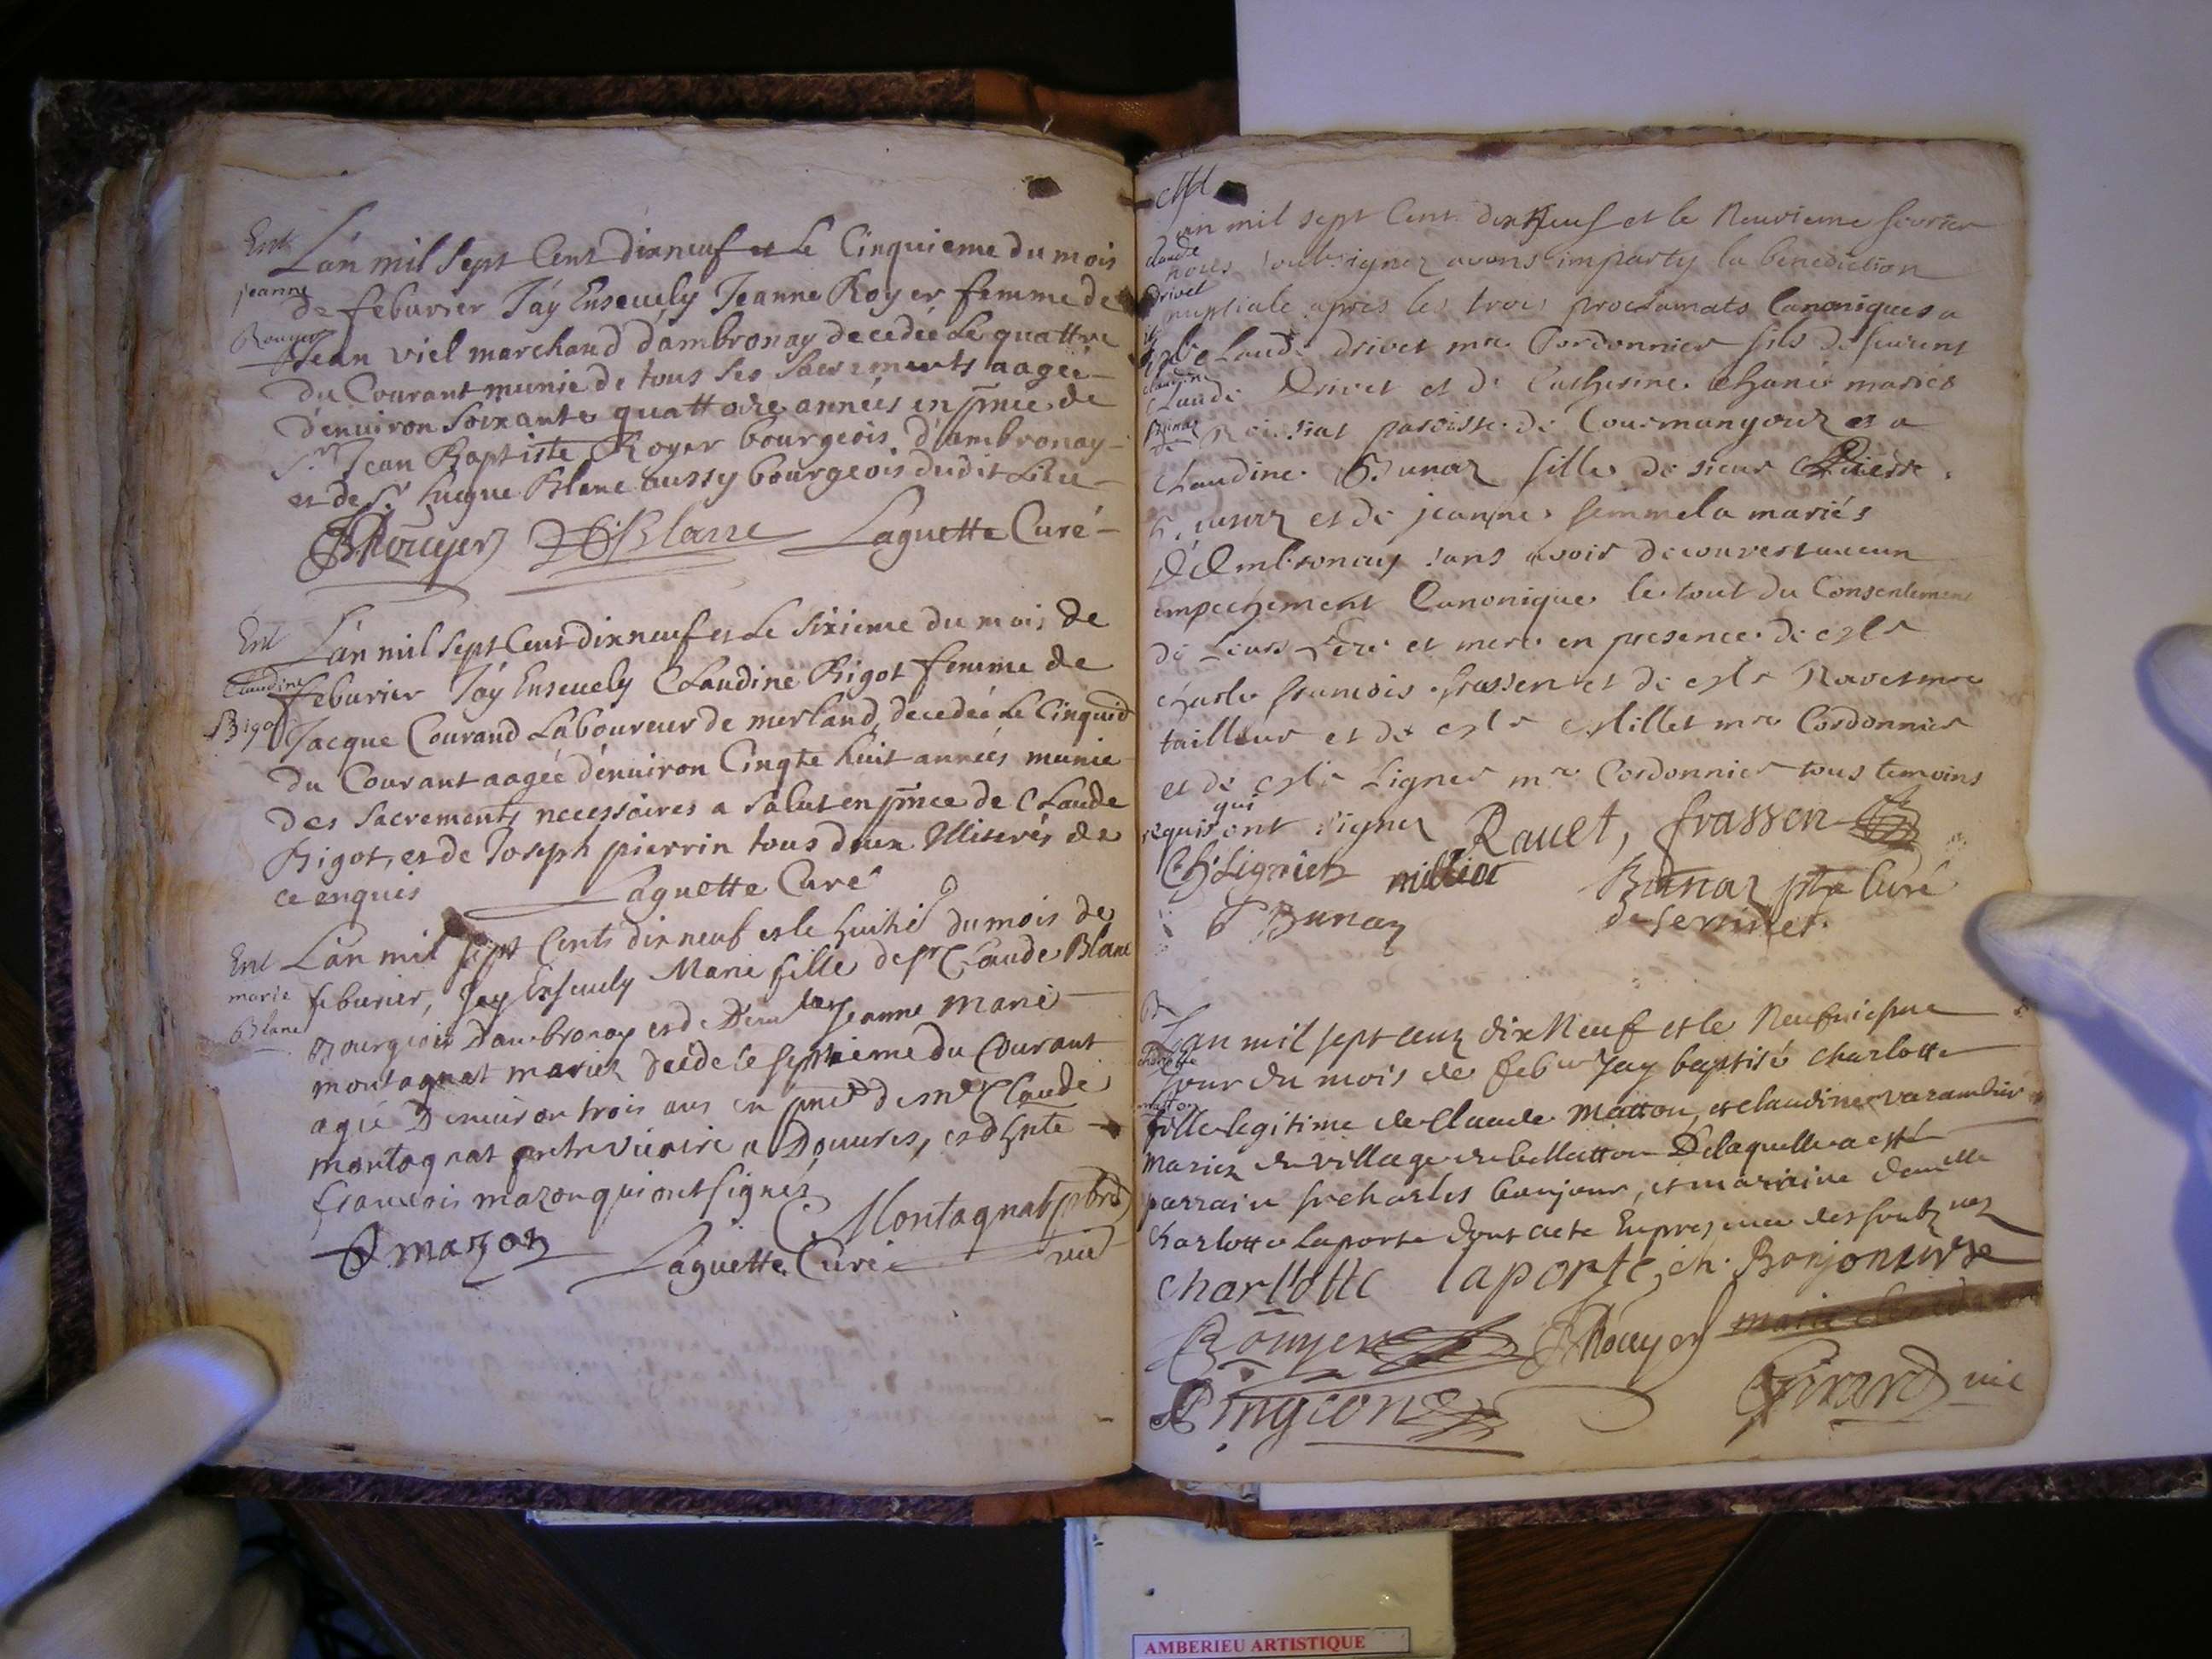 Ent
jeanne
Rouyer
Lán mil Sept Cent Dixneuf et Le Cinquieme du mois
de feburier Jáy Enseuely Jeanne Royer femme de
Jean viel marchand dámbronay decedeé Le quattre
du Courant munie de tous ses Sacrements aageé
dénuiron Soixante quattorze anneés en pnce de
Sr. Jean Baptiste Royer bourgeois d'ambronay
et de Sr. Hugue Blanc aussy bourgeois dudit Lieu
JBRouyer Blanc Laguette Curé
Ent
Claudine
Bigot
Lán mil Sept Cent dixneuf et Le Sixieme du mois de
feburier Jáy Enseuely CLaudine Bigot femme de
Jacque Courand Laboureur de merland, decedeé Le Cinquie
du Courant aageé dénuiron Cinqte huit anneés munie
des Sacrements necessaires a Salut en pnce de CLaude
Bigot, et de Joseph pierrin tous deux Illiterés de
ce enquis Laguette Curé
Ent
marie
Blanc
Lán mil sept Cents dixneuf et le huitie du mois de
feburier, Jay Enseuely Marie fille de Sr Claude Blanc
Bourgeois Dambronay et de Demlle Jeanne Marie
montagnat mariez decedé le septieme du Courant
ageé Denuiron trois ans en pnce de mre Claude
montagnat pretre vicaire a Douures, et d'hte
francois mazon qui ont signés
mazon Laguette Curé C Montagnat pbre
vic
Claude
drivet
Claudine
Bunaz
L'an mil sept Cent dixNeuf et le Neuvieme fevrier
nous soubsignez avons imparty la benediction
nuptiale apres les trois proclamats Canoniques a
Claude drivet mre Cordonnier fils de feu
Claude Drivet et de Catherine mariés
paroisse de Courmangoux et a
Claudine Bunaz fille de sieur Pierre
Bunaz et de jeanne femmela mariés
D'Ambronay sans avoir decouvert aucun
empechement Canonique le tout du Consentement
de Leurs Pere et mere en presence de
charle francois frassen et de Ravet mre
tailleur et de Millet mre Cordonnier
et de Ligner mre Cordonnier tous temoins
requis qui ont signez Rauet, frassen
Lignier millioc Bunaz ptre Curé
P Bunaz de
B
charlotte
matton
Lan mil sept cenz dix Neuf et le Neufuiesme
Jour du mois de feburr Jay baptisé charlotte
fille legitime de Claude Matton, et claudine varambier
mariez du village de bellatton Delaquelle a esté
parrain sr charles bonjour, et marraine demlle
charlotte Laporte dont acte En presence des soubznez
charlotte laporte, ch. Bonjour
Rouyer JBRouyer
Dingcon Girard vic
AMBERIEU ARTISTIQUE